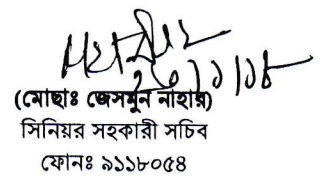 ২০/১/১৮
(মোছাঃ জেসমুন নাহার)
সিনিয়র সহকারী সচিব
ফোনঃ ৯১১৮০৫৪